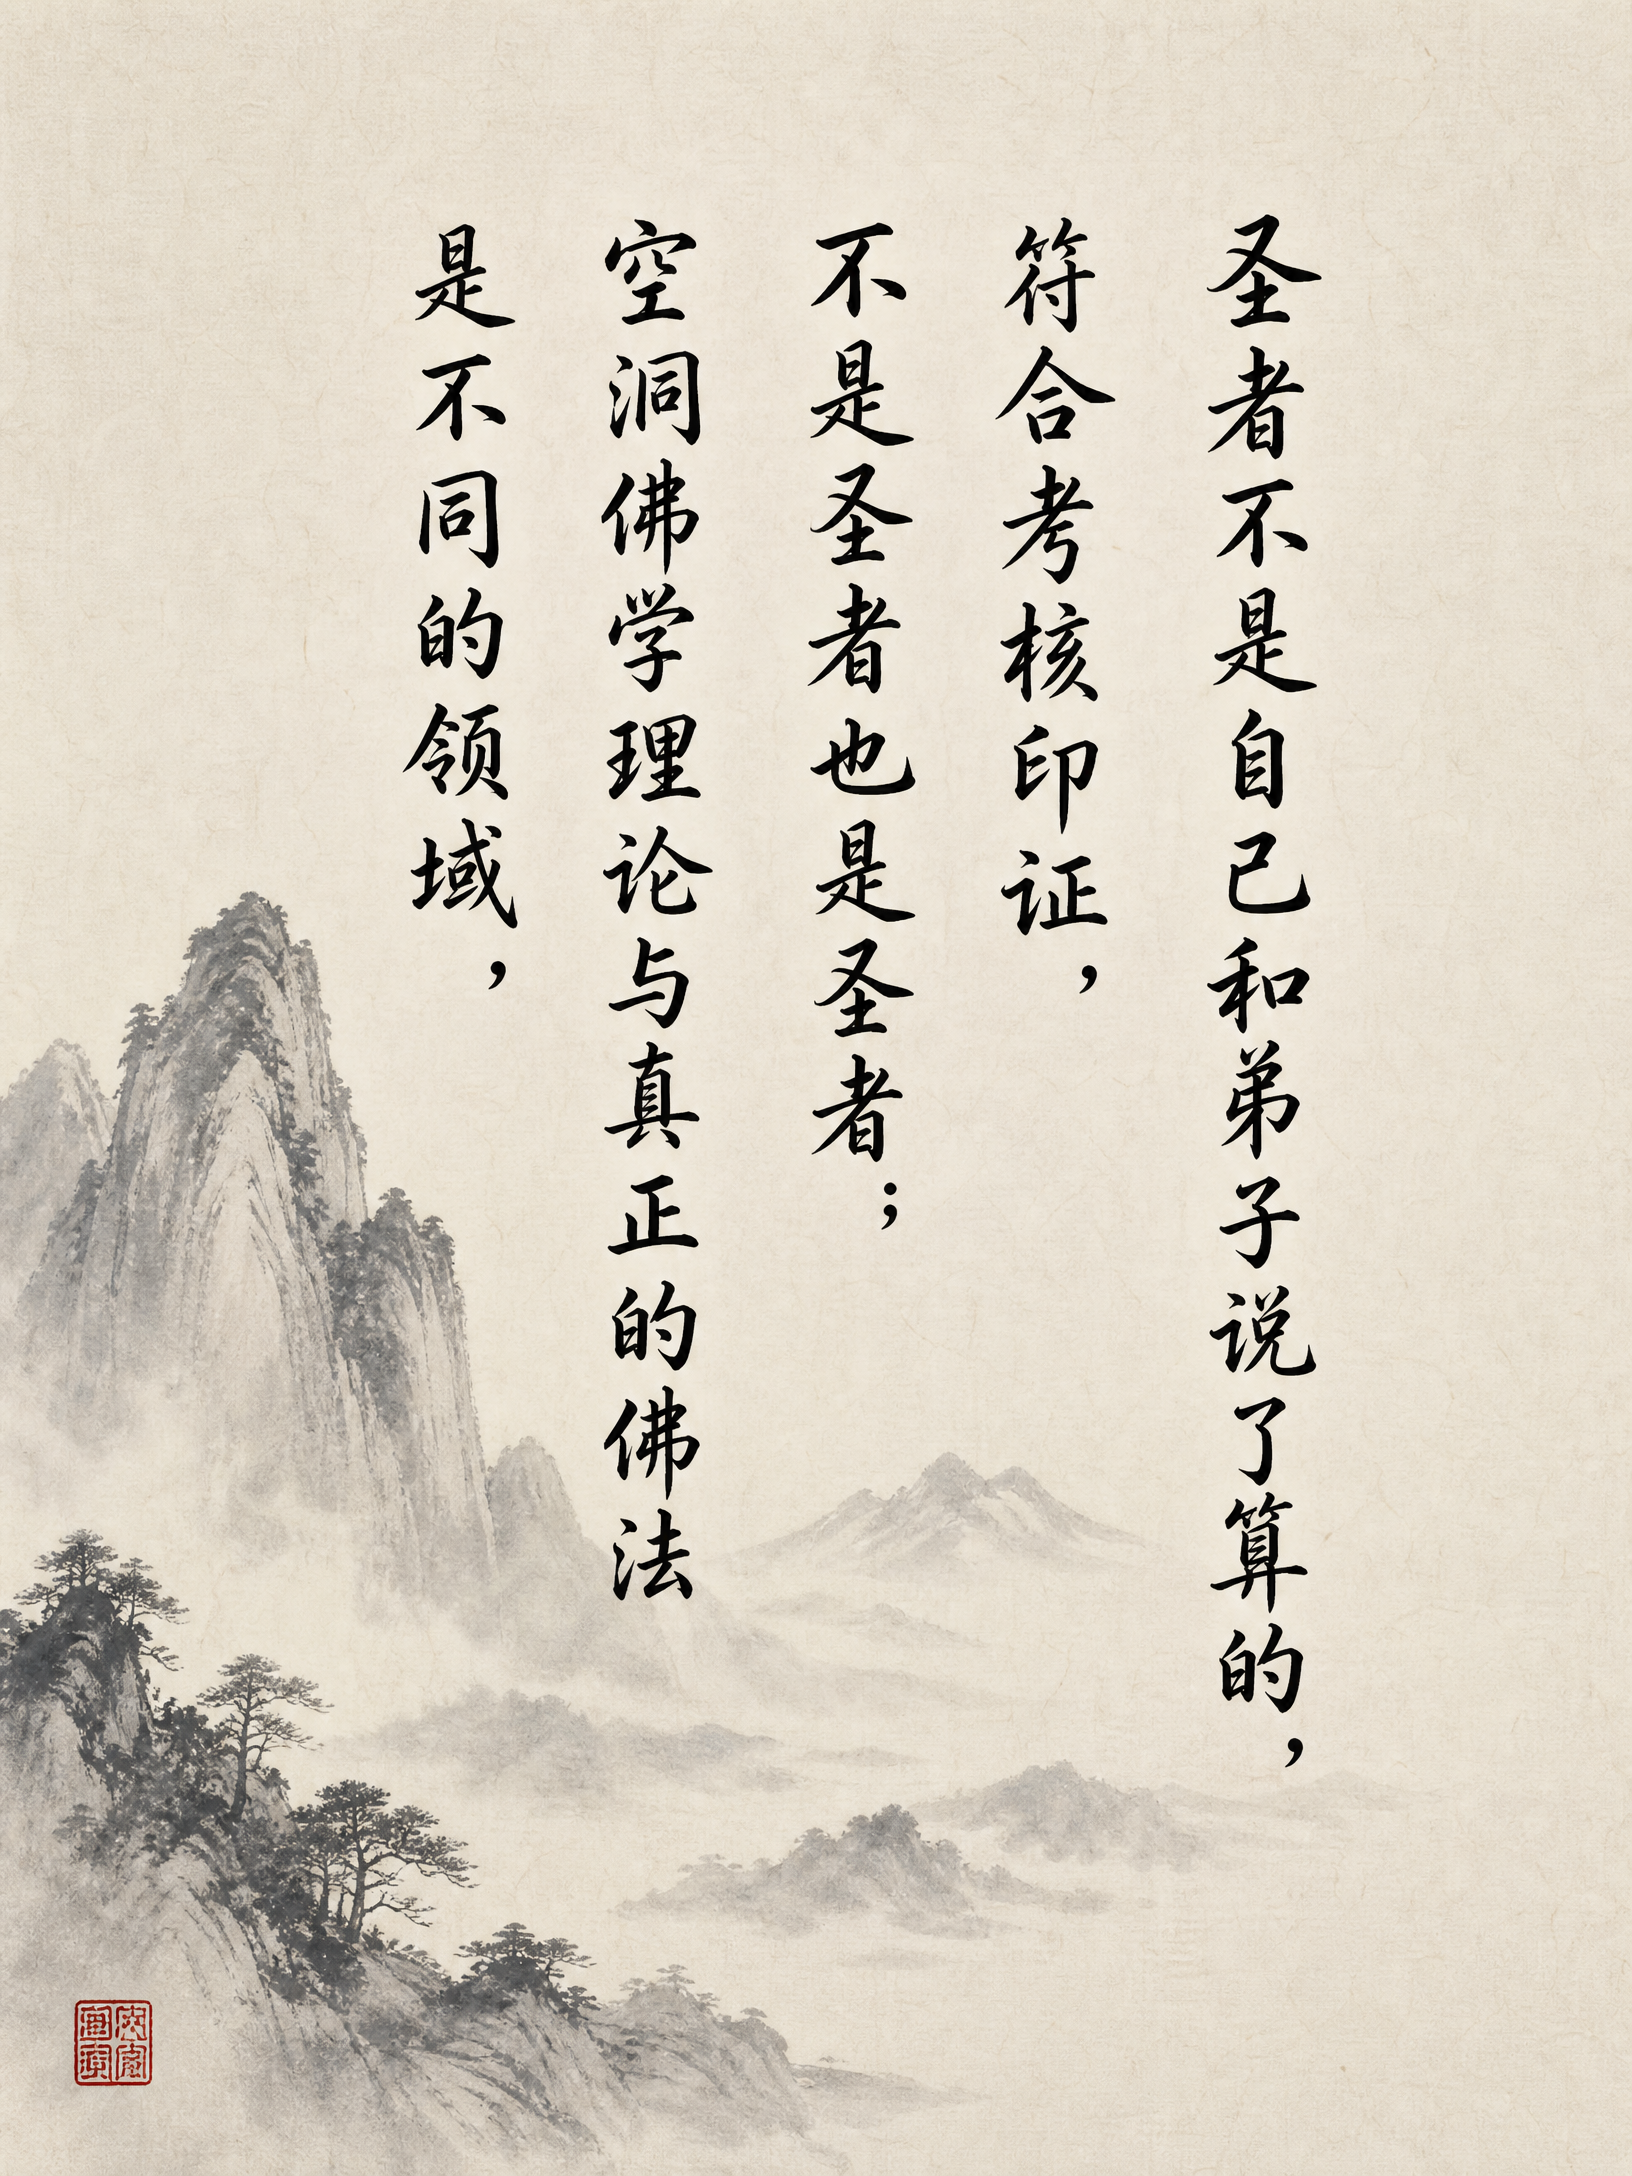 圣者不是自己和弟子说了算的，
符合考核印证，
不是圣者也是圣者；
空洞佛学理论与真正的佛法
是不同的领域，